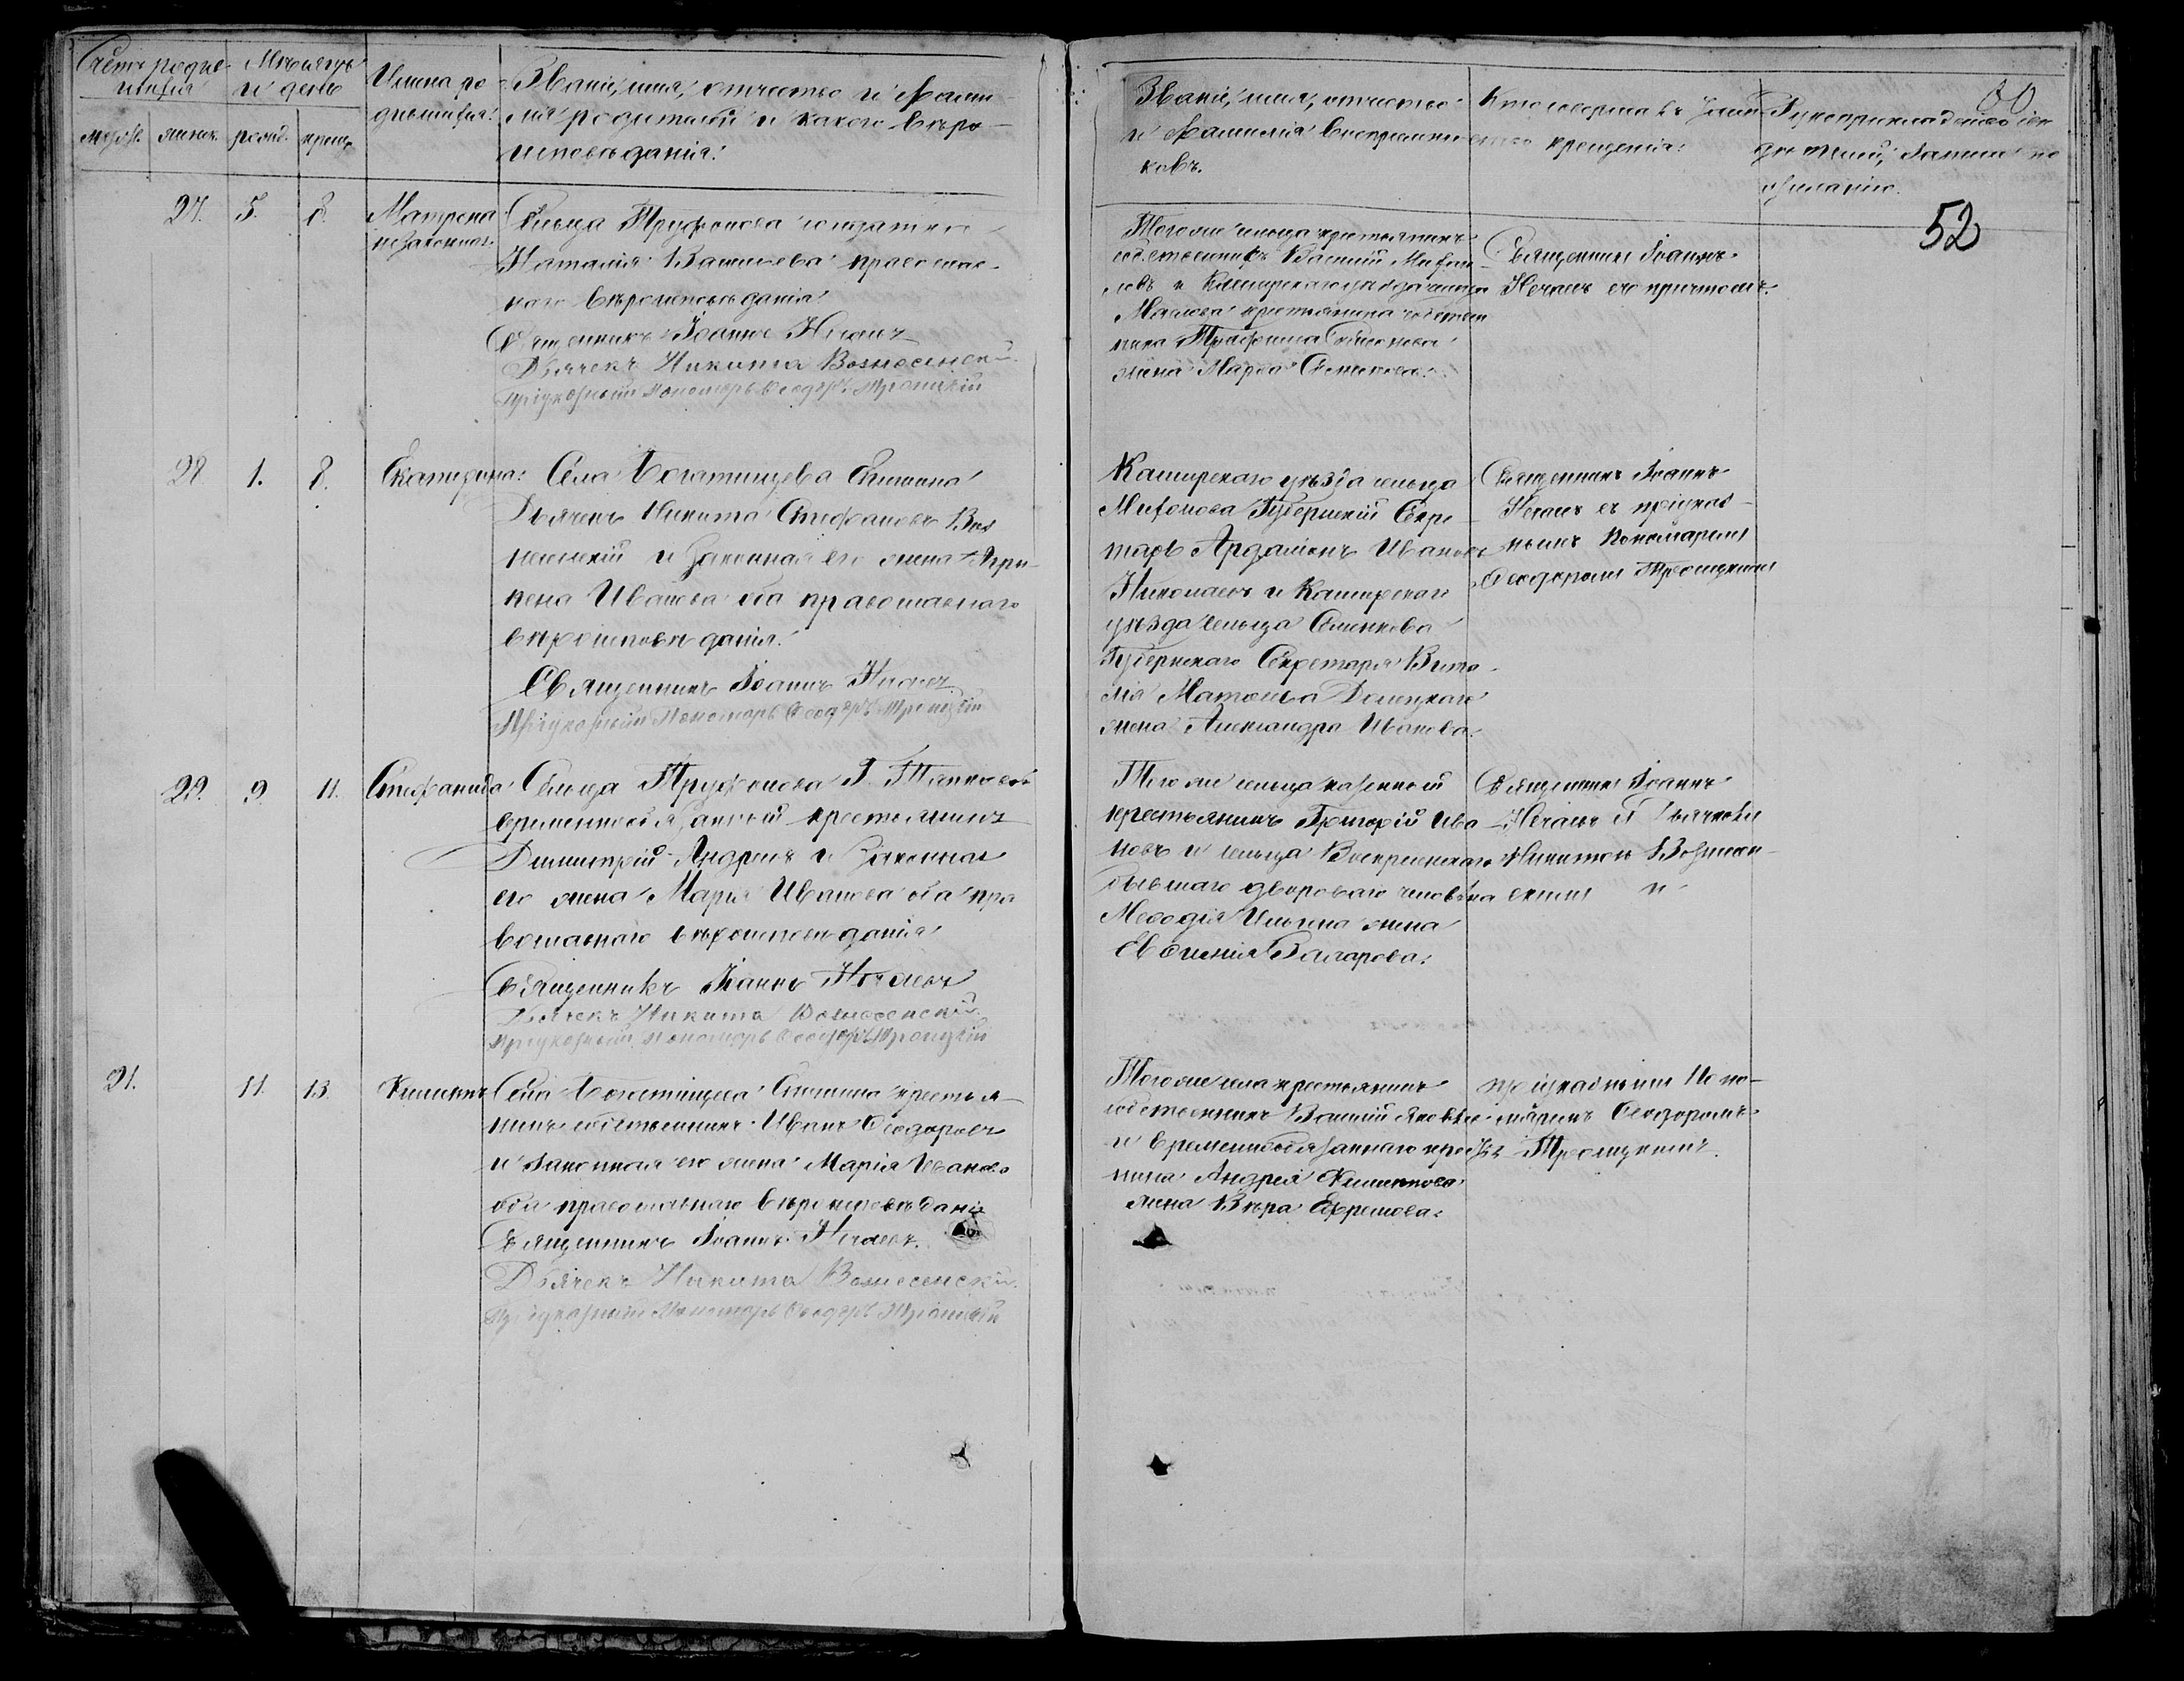 Счетъ родив-
шихся
Мѣсяцъ
и день
Имена ро-
дившихся
Званіе, имя, отчество и фами-
лія родителей и какого вѣро-
исповѣданія.
мужск. женск. рожд. крещ.
27. 5. 8. Матрена
незаконная
Сельца Труфонова солдатка
Наталія Васильева православ-
наго вѣроисповѣданія
Священникъ Іоаннъ Нечаевъ
Дьячекъ Никита Вознесенскій
Пріуказный Пономарь Ѳеодоръ Троицкій
28 1. 8. Екатерина
Села Богатищева Епишина
Дьячекъ Никита Стефановъ Воз
несенскій и законная его жена Агри-
пена Иванова оба православнаго
вѣроисповѣданія.
Священникъ Іоаннъ Нечаевъ
Пріуказный Пономарь Ѳеодоръ Троицкій
29. 9. 11. Стефанида
Сельца Труфонова Г.
временнообязанный крестьянинъ
Димитрій Андреевъ и законная
его жена Марія Иванова оба пра
вославнаго вѣроисповѣданія
Священникъ Іоаннъ Нечаевъ
Дьячекъ Никита Вознесенскій
Пріуказный Пономарь Ѳеодоръ Троицкій
21. 11. 13.
Села Богатищева Епишина крестья-
нинъ собственникъ Иванъ Ѳеодоровъ
и законная его жена Марія Иванова
оба православнаго вѣроисповѣданія
Священникъ Іоаннъ Нечаевъ.
Дьячекъ Никита Вознесенскій
Пріуказный Пономарь Ѳеодоръ Троицкій
Званіе, имя, отчество
и фамилія воспріемни-
ковъ.
Кто совершалъ таин-
ство крещенія:
Рукоприкладство сви
дѣтелей записи по
желанію.
52
Тогоже сельца крестьянинъ
собственникъ Василій
и Каширскаго уѣзда сельца
крестьянина собствен
ника
жена Марѳа
Священникъ Іоаннъ
Нечаевъ съ причтомъ.
Каширскаго уѣзда сельца
Губернскій Секре-
тарь Ардаліонъ Ивановъ
и Каширскаго
уѣзда сельца
Губернскаго Секретаря
жена Александра Иванова.
Священникъ Іоаннъ
Нечаевъ съ пріуказ-
нымъ Пономаремъ
Ѳеодоромъ Троицкимъ
Тогоже сельца казенный
крестьянинъ Григорій Ива
новъ и сельца Воскресенскаго
бывшаго двороваго человѣка
Меѳодія Ильина жена
Макарова.
Священникъ Іоаннъ
Нечаевъ съ Дьячкомъ
Никитою Вознесен-
скимъ
Тогоже села крестьянинъ
собственникъ Василій Яковлевъ
и временнообязаннаго крестья
нина Андрея
жена Вѣра Ефремова.
пріуказнымъ Поно-
маремъ Ѳеодоромъ
Троицкимъ.